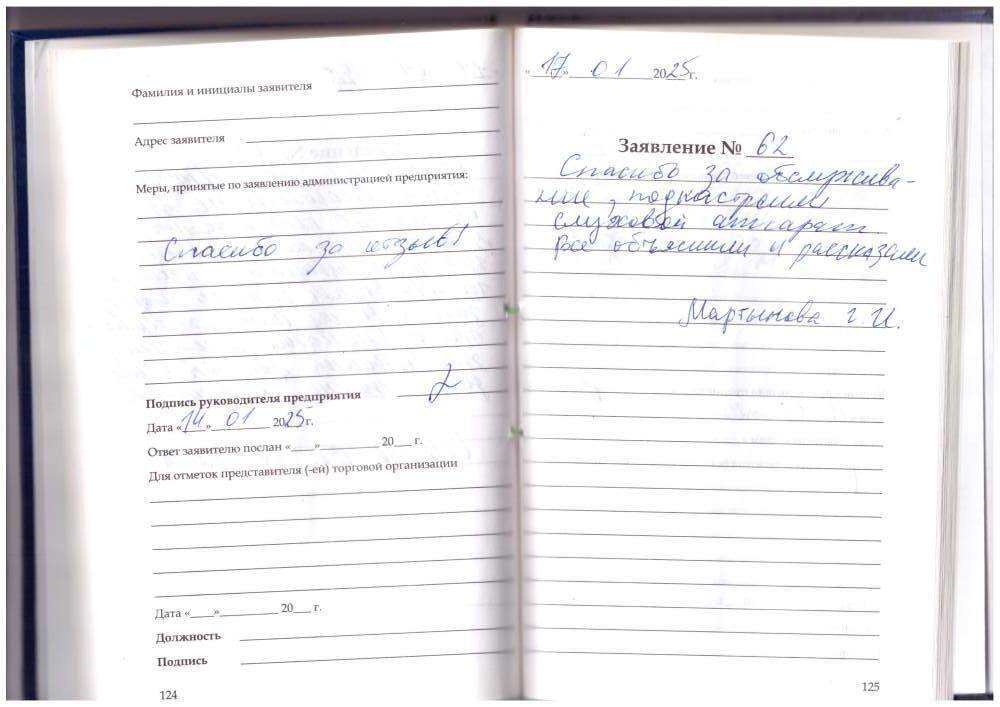 Фамилия и инициалы заявителя
Адрес заявителя
Меры, принятые по заявлению администрацией предприятия:
Спасибо за отзыв!
Подпись руководителя предприятия
Дата «14» 01 2025г.
Ответ заявителю послан «____»__________ 20___ г.
Для отметок представителя (-ей) торговой организации
Дата «____»__________ 20___ г.
Должность
Подпись
124
«17» 01 2025г.
Заявление № 62
Спасибо за обслужива-
ние, подкастроили
слуховой аппарат
все объяснили и рассказали
Мартынова Г.И.
125